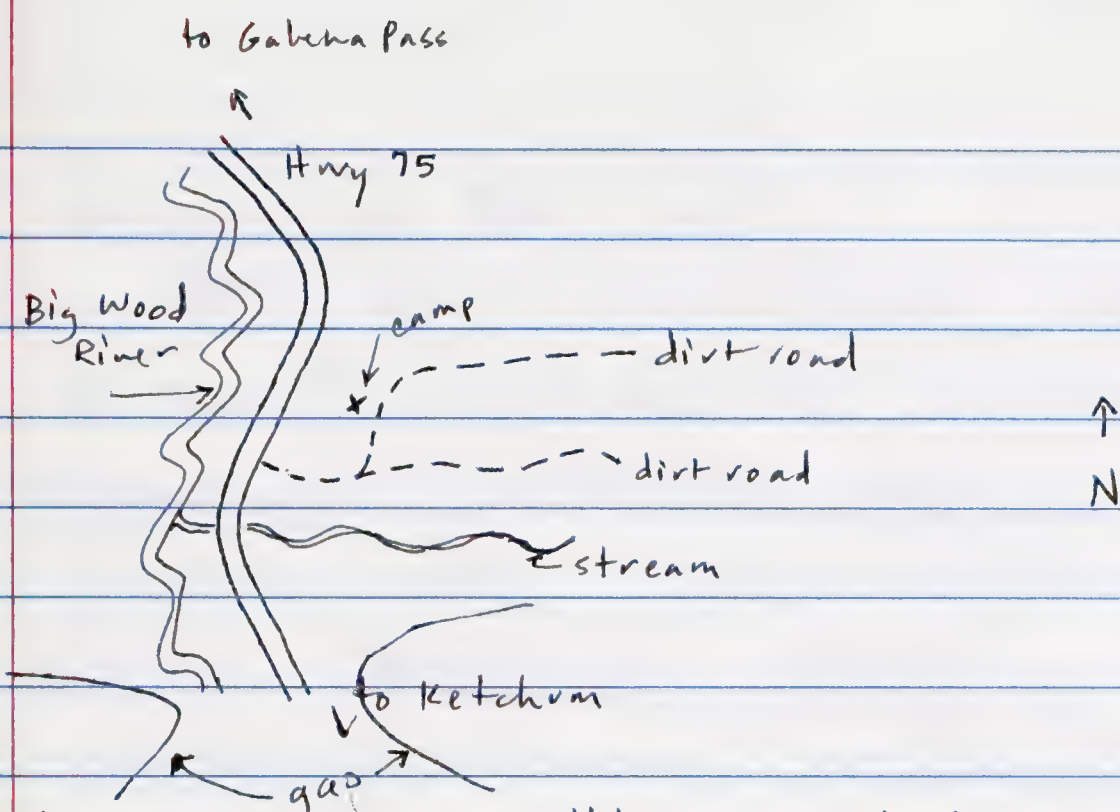 to Galena Pass
Hwy 75
Big Wood
River
camp
dirt road
dirt road
N
stream
to Ketchum
gap